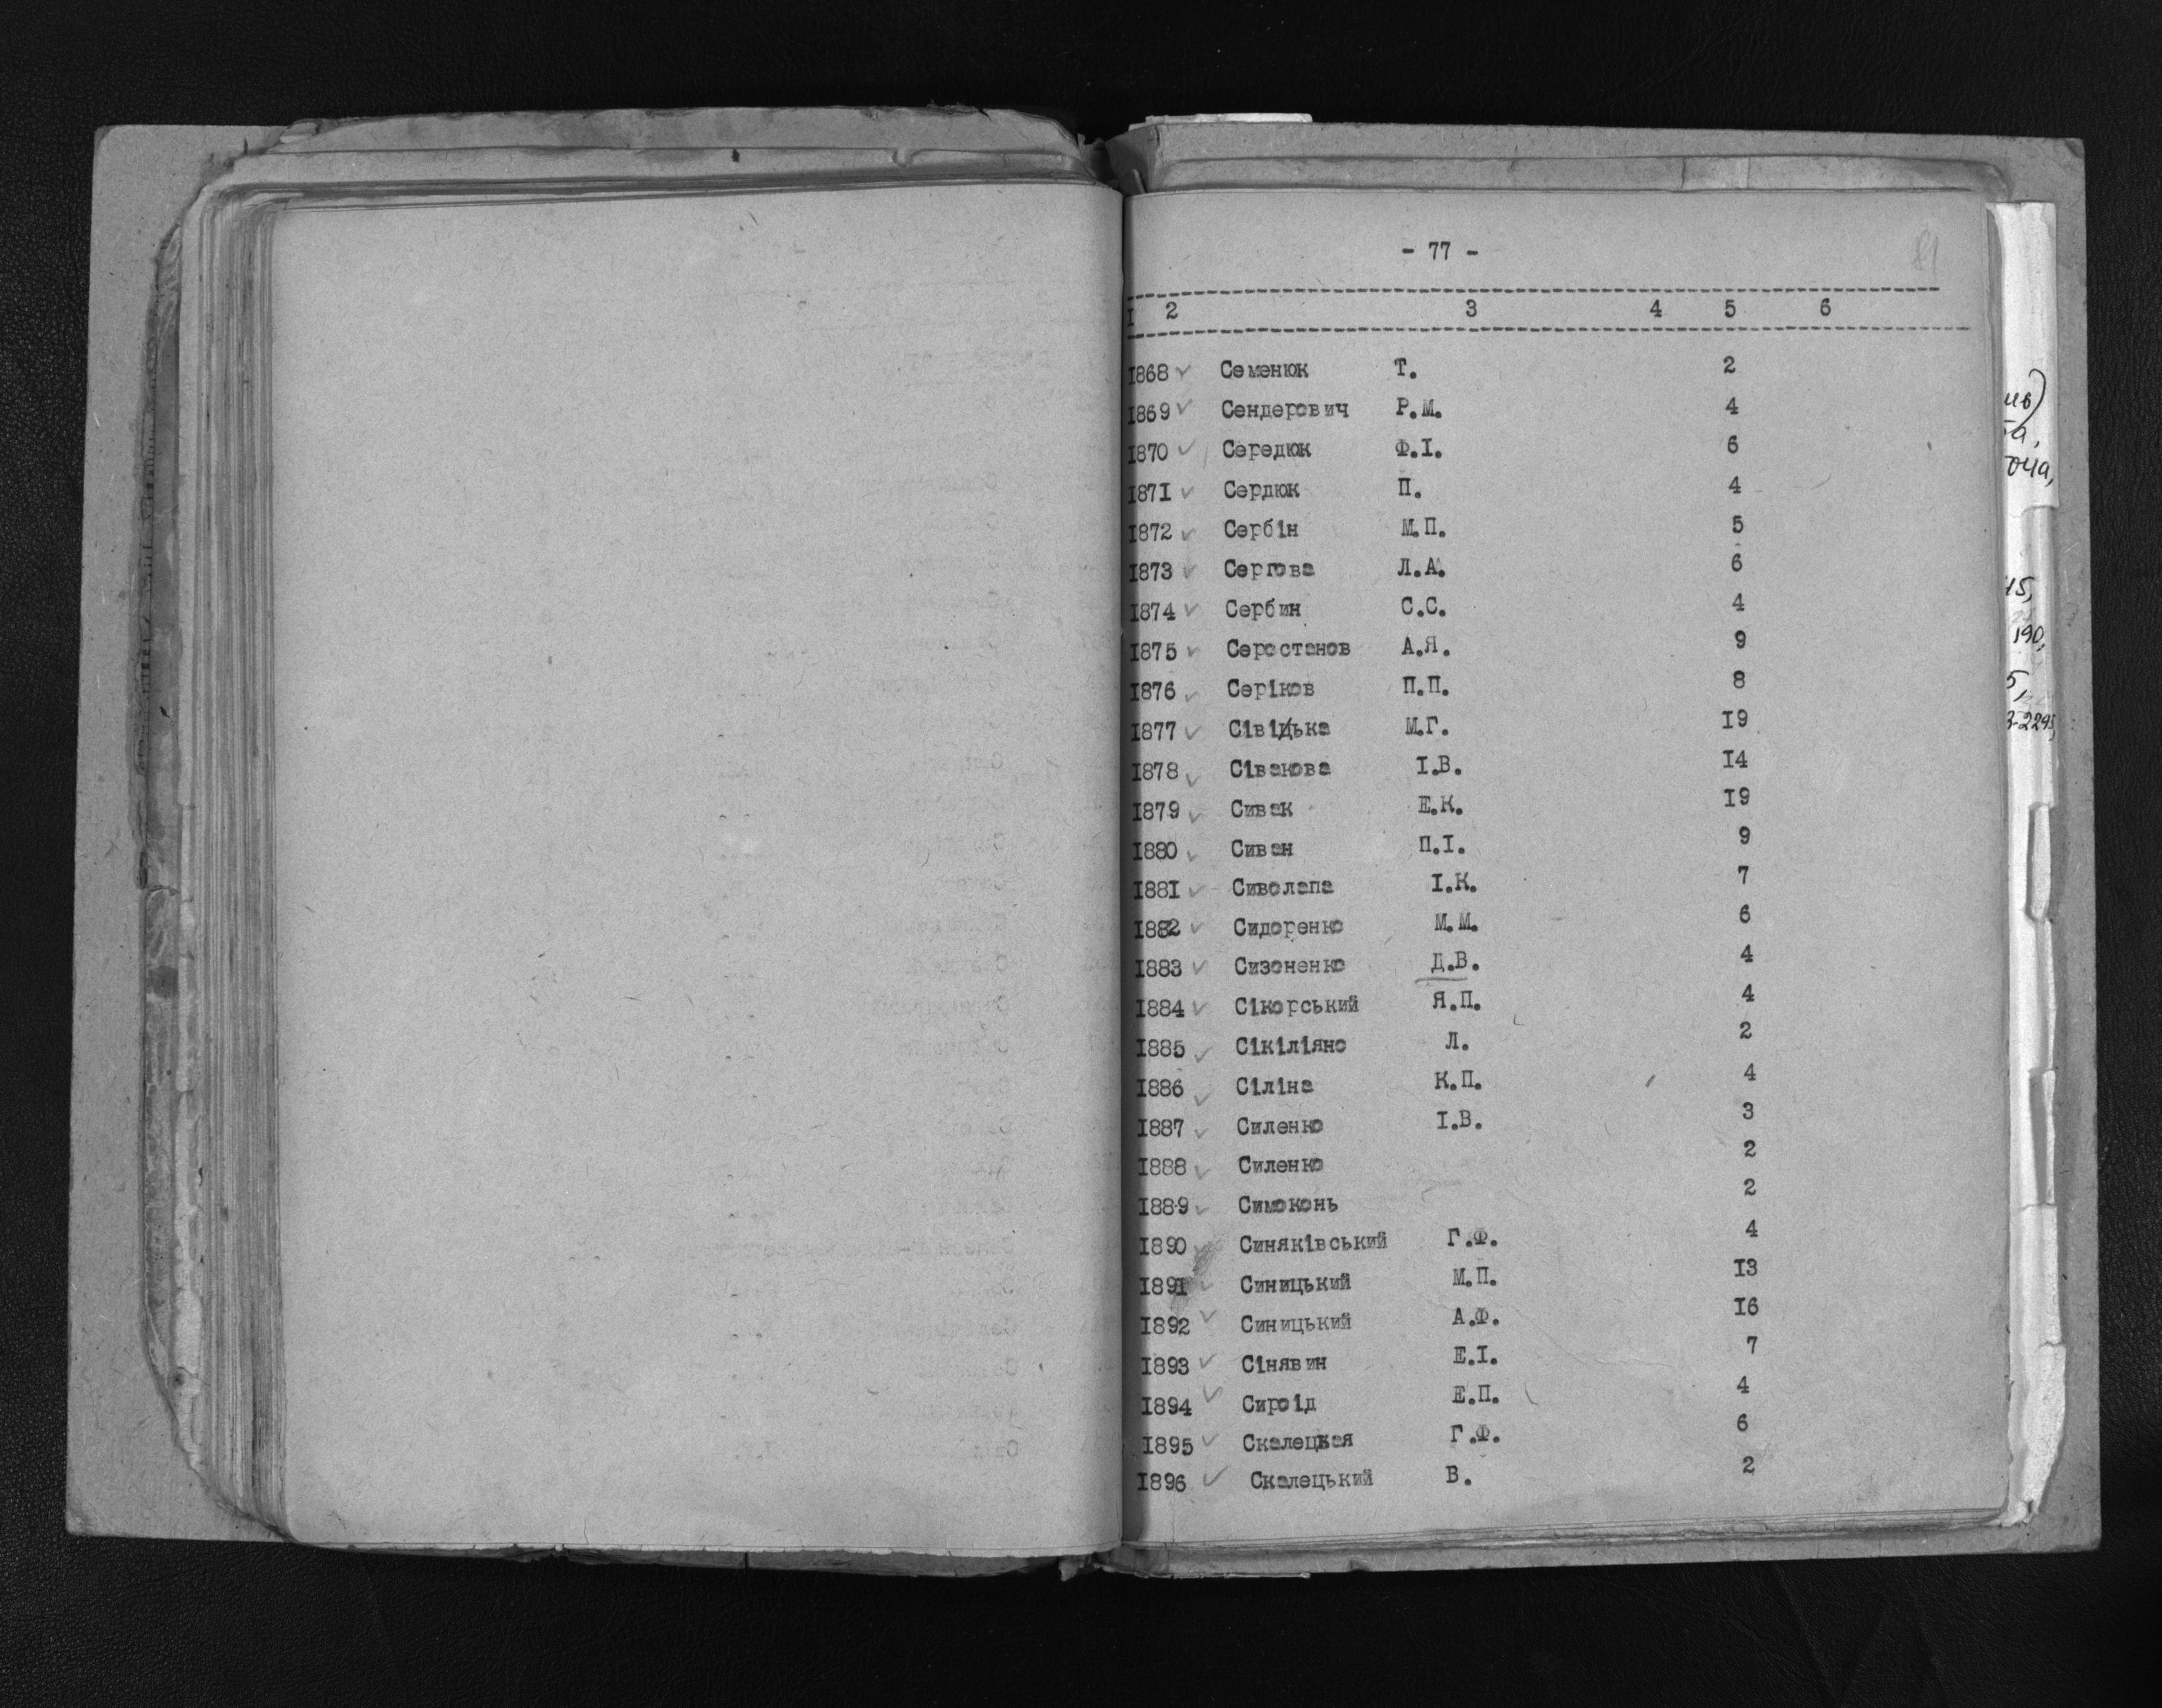 - 77 -
81
1 2 3 4 5 6
1868 ✓ Семенюк Т. 2
1869 ✓ Сендерович Р.М. 4
1870 ✓ Середюк Ф.І. 6
1871 ✓ Сердюк П. 4
1872 ✓ Сербін М.П. 5
1873 ✓ Сергова Л.А. 6
1874 ✓ Сербин С.С. 4
1875 ✓ Серостанов А.Я. 9
1876 ✓ Серіков П.П. 8
1877 ✓ Сівіцька М.Г. 19
1878 ✓ Сівакова І.В. 14
1879 ✓ Сивак Е.К. 19
1880 ✓ Сиван П.І. 9
1881 ✓ Сиволапа І.К. 7
1882 ✓ Сидоренко М.М. 6
1883 ✓ Сизоненко Д.В. 4
1884 ✓ Сікорський Я.П. 4
1885 ✓ Сікіліяно Л. 2
1886 ✓ Сіліна К.П. 4
1887 ✓ Силенко І.В. 3
1888 ✓ Силенко 2
1889 ✓ Симоконь 2
1890 ✓ Синяківський Г.Ф. 4
1891 ✓ Синицький М.П. 13
1892 ✓ Синицький А.Ф. 16
1893 ✓ Сінявин Е.І. 7
1894 ✓ Сироід Е.П. 4
1895 ✓ Скалецкая Г.Ф. 6
1896 ✓ Скалецький В. 2
190,
3-2293,